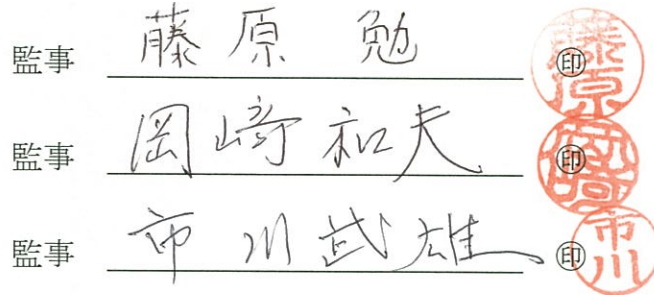 監事 藤原 勉 ㊞ 藤原
監事 岡﨑和夫 ㊞
監事 市川武雄 ㊞ 市川